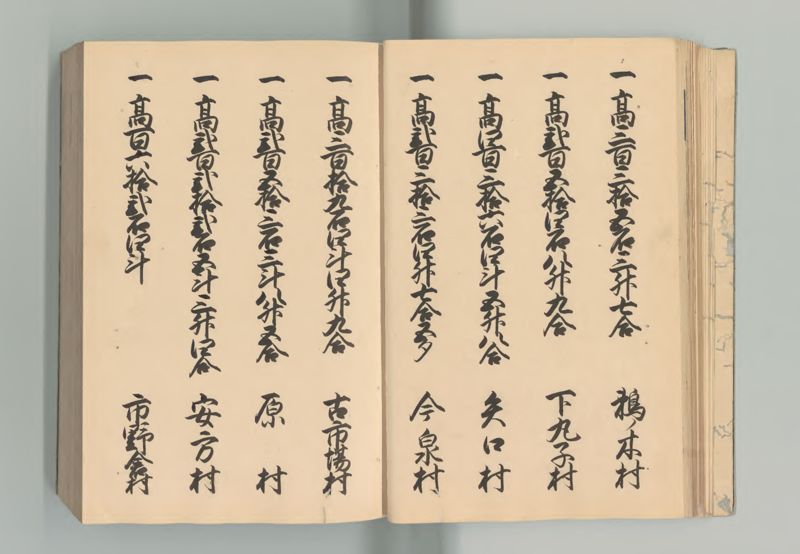 一高三百三拾五石三升七合 鵜ノ木村
一高弐百五拾四石八升九合 下丸子村
一高四百三拾六石四斗五升八合 矢口村
一高弐百三拾三石四升七合五夕 今泉村
一高三百拾九石四斗四升九合 古市場村
一高弐百五拾三石三斗八升五合 原村
一高弐百弐拾弐石五斗三升四合 安方村
一高百六拾弐石四斗 市野倉村